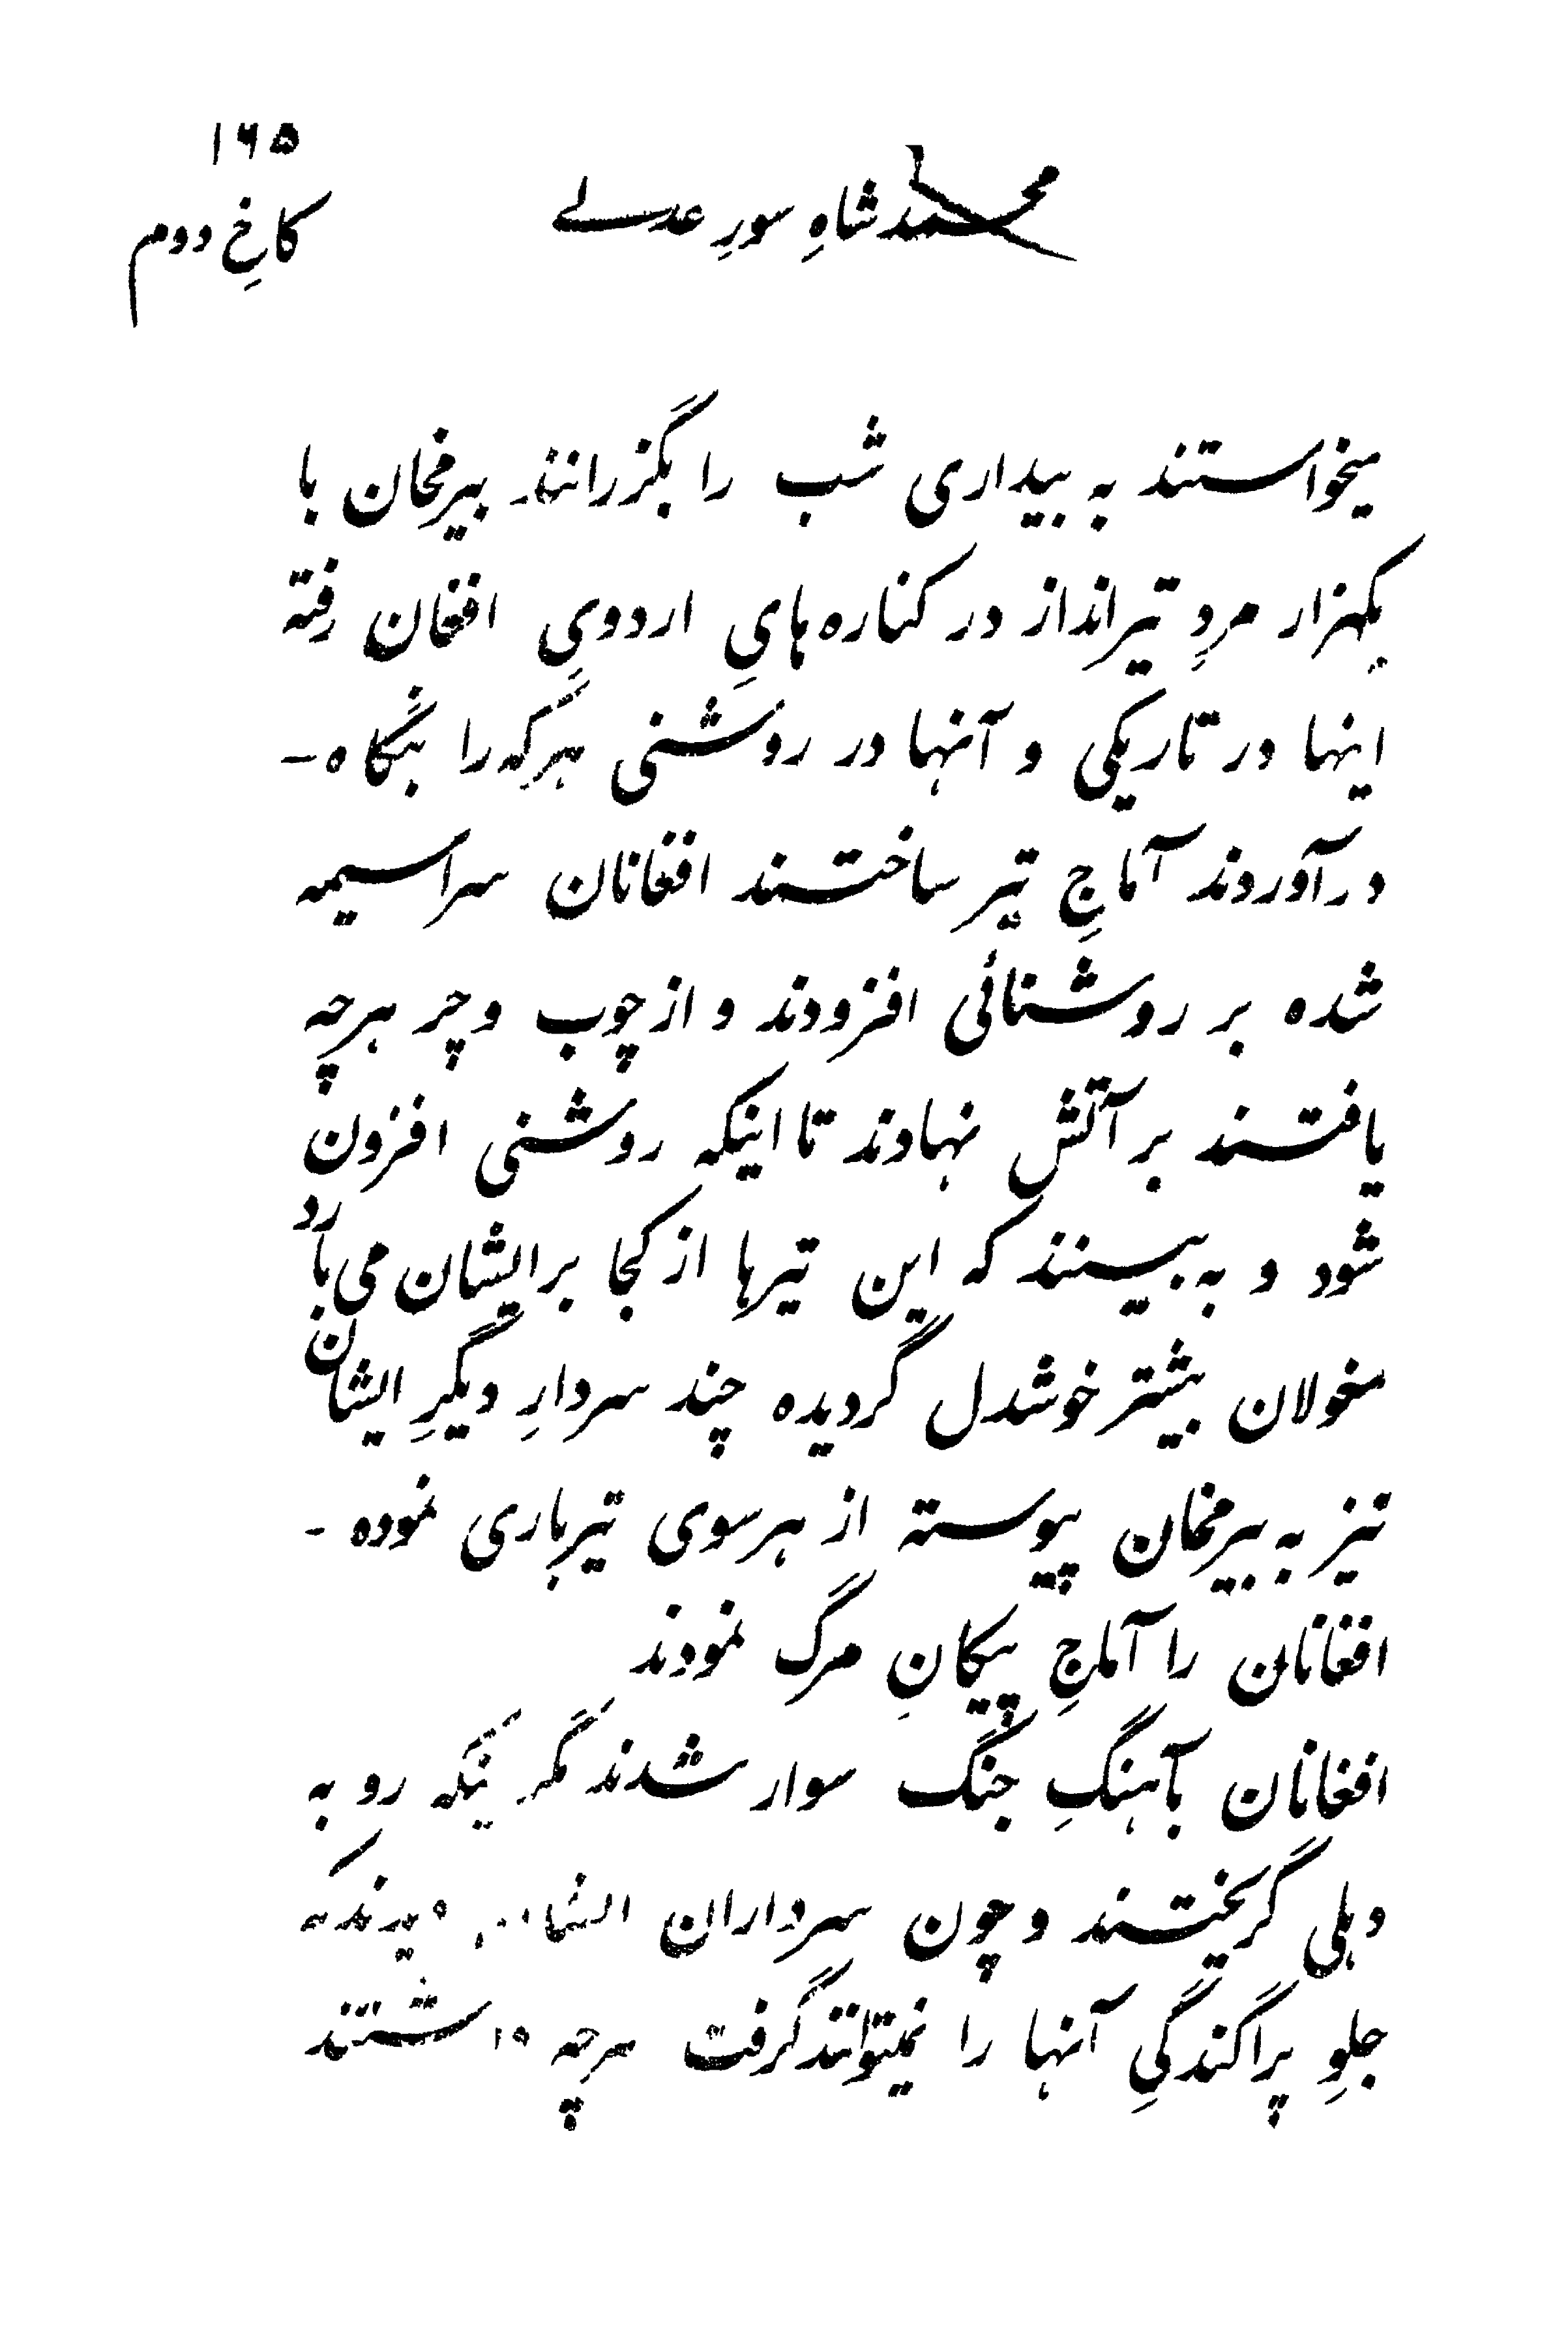 ۱۶۵
محمد شاهِ سورِ عدلے
کاخِ دوم
میخواستند به بیداری شب را بگزرانند بیرمخان با
یکهزار مردِ تیرانداز در کناره هایِ اردویِ افغان رفته
اینها در تاریکی و آنها در روشنی هرکه را بنگاه -
درآوردند آماجِ تیر ساختند افغانان سراسیمه
شده بر روشنائی افزودند و از چوب و چر هرچه
یافتند بر آتش نهادند تا اینکه روشنی افزون
شود و به بینند که این تیرها از کجا بر ایشان می بارد
مغولان بیشتر خوشدل گردیده چند سردارِ دیگرِ ایشان
نیز به بیرمخان پیوسته از هر سوی تیرباری نموده -
افغانان را آماجِ پیکانِ مرگ نمودند
افغانان بآهنگِ جنگ سوار شدند مگر نیکه رو به
دهلی گریختند و چون سرداران ایشان دیدند که
جلوِ پراگندگیِ آنها را نمیتوانند گرفت هرچه داشتند